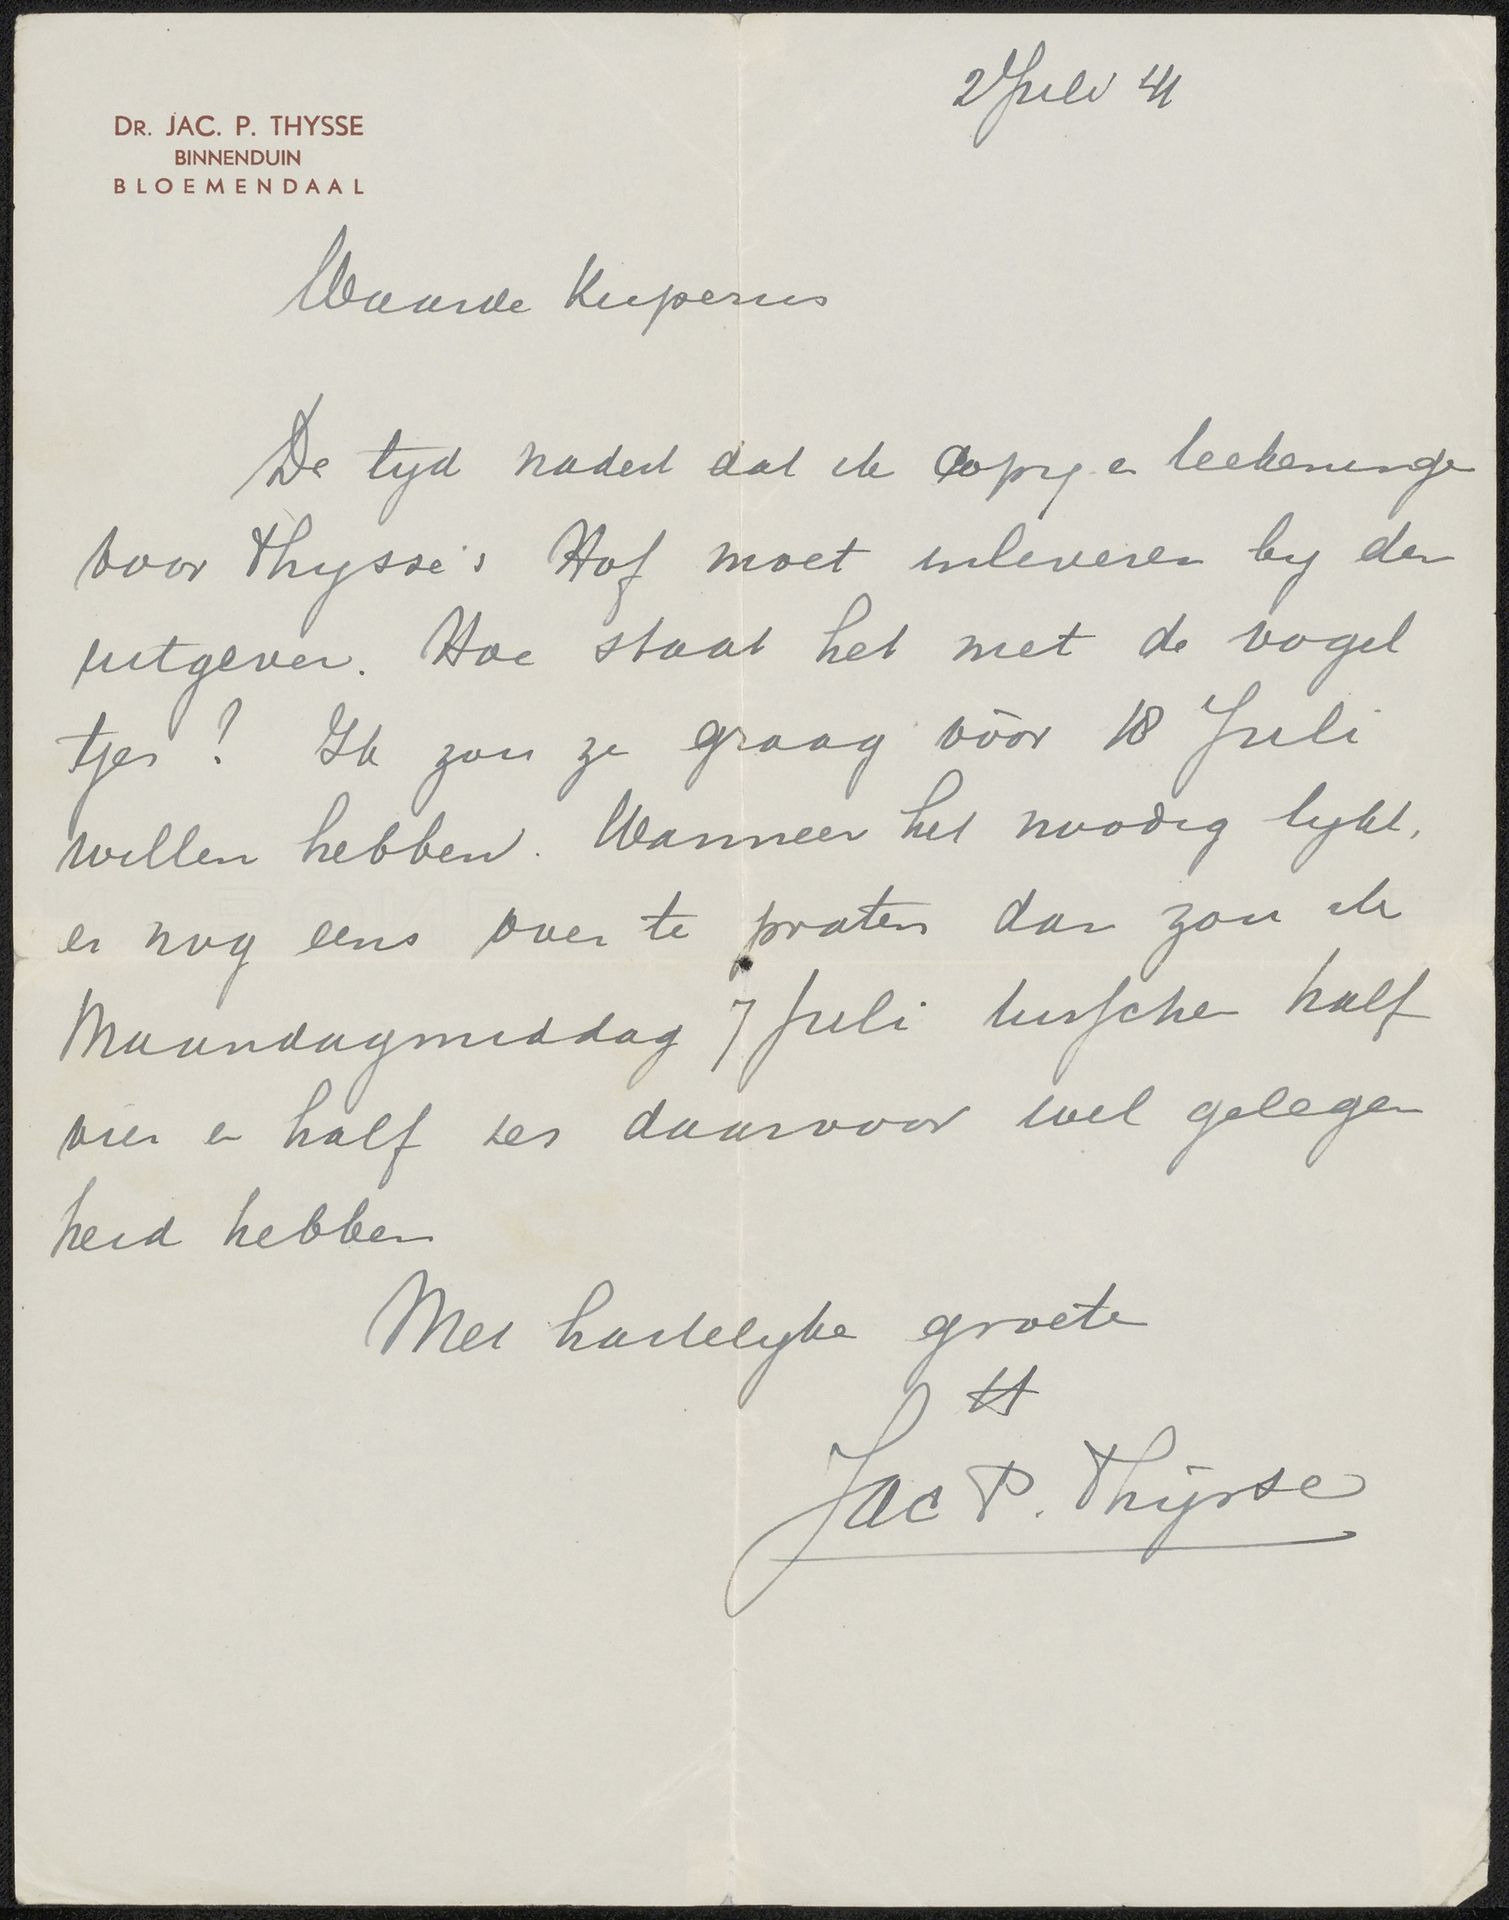 2 Juli 41
DR. JAC. P. THYSSE
BINNENDUIN
BLOEMENDAAL
Waarde Kuperus
De tyd nadert dat ik Copy en teekeningen
voor Thysse's Hof moet inleveren by den
uitgever. Hoe staat het met de vogel
tjes? Ik zou ze graag vóór 18 Juli
willen hebben. Wanneer het noodig lykt,
er nog eens over te praten dan zou ik
Maandagmiddag 7 Juli tusschen half
vier en half zes daarvoor wel gelegen
heid hebben
Met hartelyke groete
tt
Jac P. Thijsse